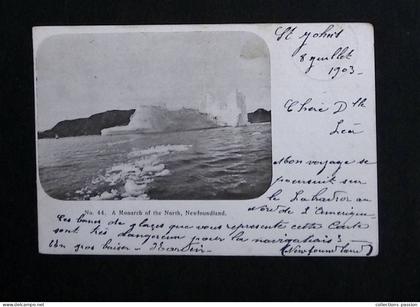 St John's
8 juillet
1903
Chère Dlle
Léa
Mon voyage se
poursuit sur
le Labrador au
Nord de l'Amérique
No. 44. A Monarch of the North, Newfoundland.
Ces bancs de glaces que vous représente cette Carte
sont très dangereux pour la navigation
Un gros baiser -
(Newfoundland)